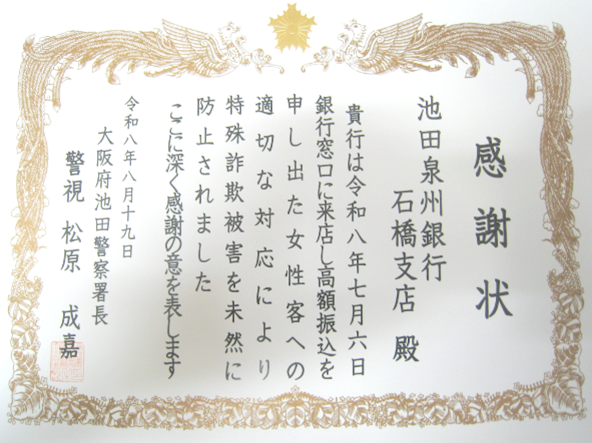 感謝状
池田泉州銀行
石橋支店 殿
貴行は令和八年七月六日
銀行窓口に来店し高額振込を
申し出た女性客への
適切な対応により
特殊詐欺被害を未然に
防止されました
ここに深く感謝の意を表します
令和八年八月十九日
大阪府池田警察署長
警視 松原 成嘉